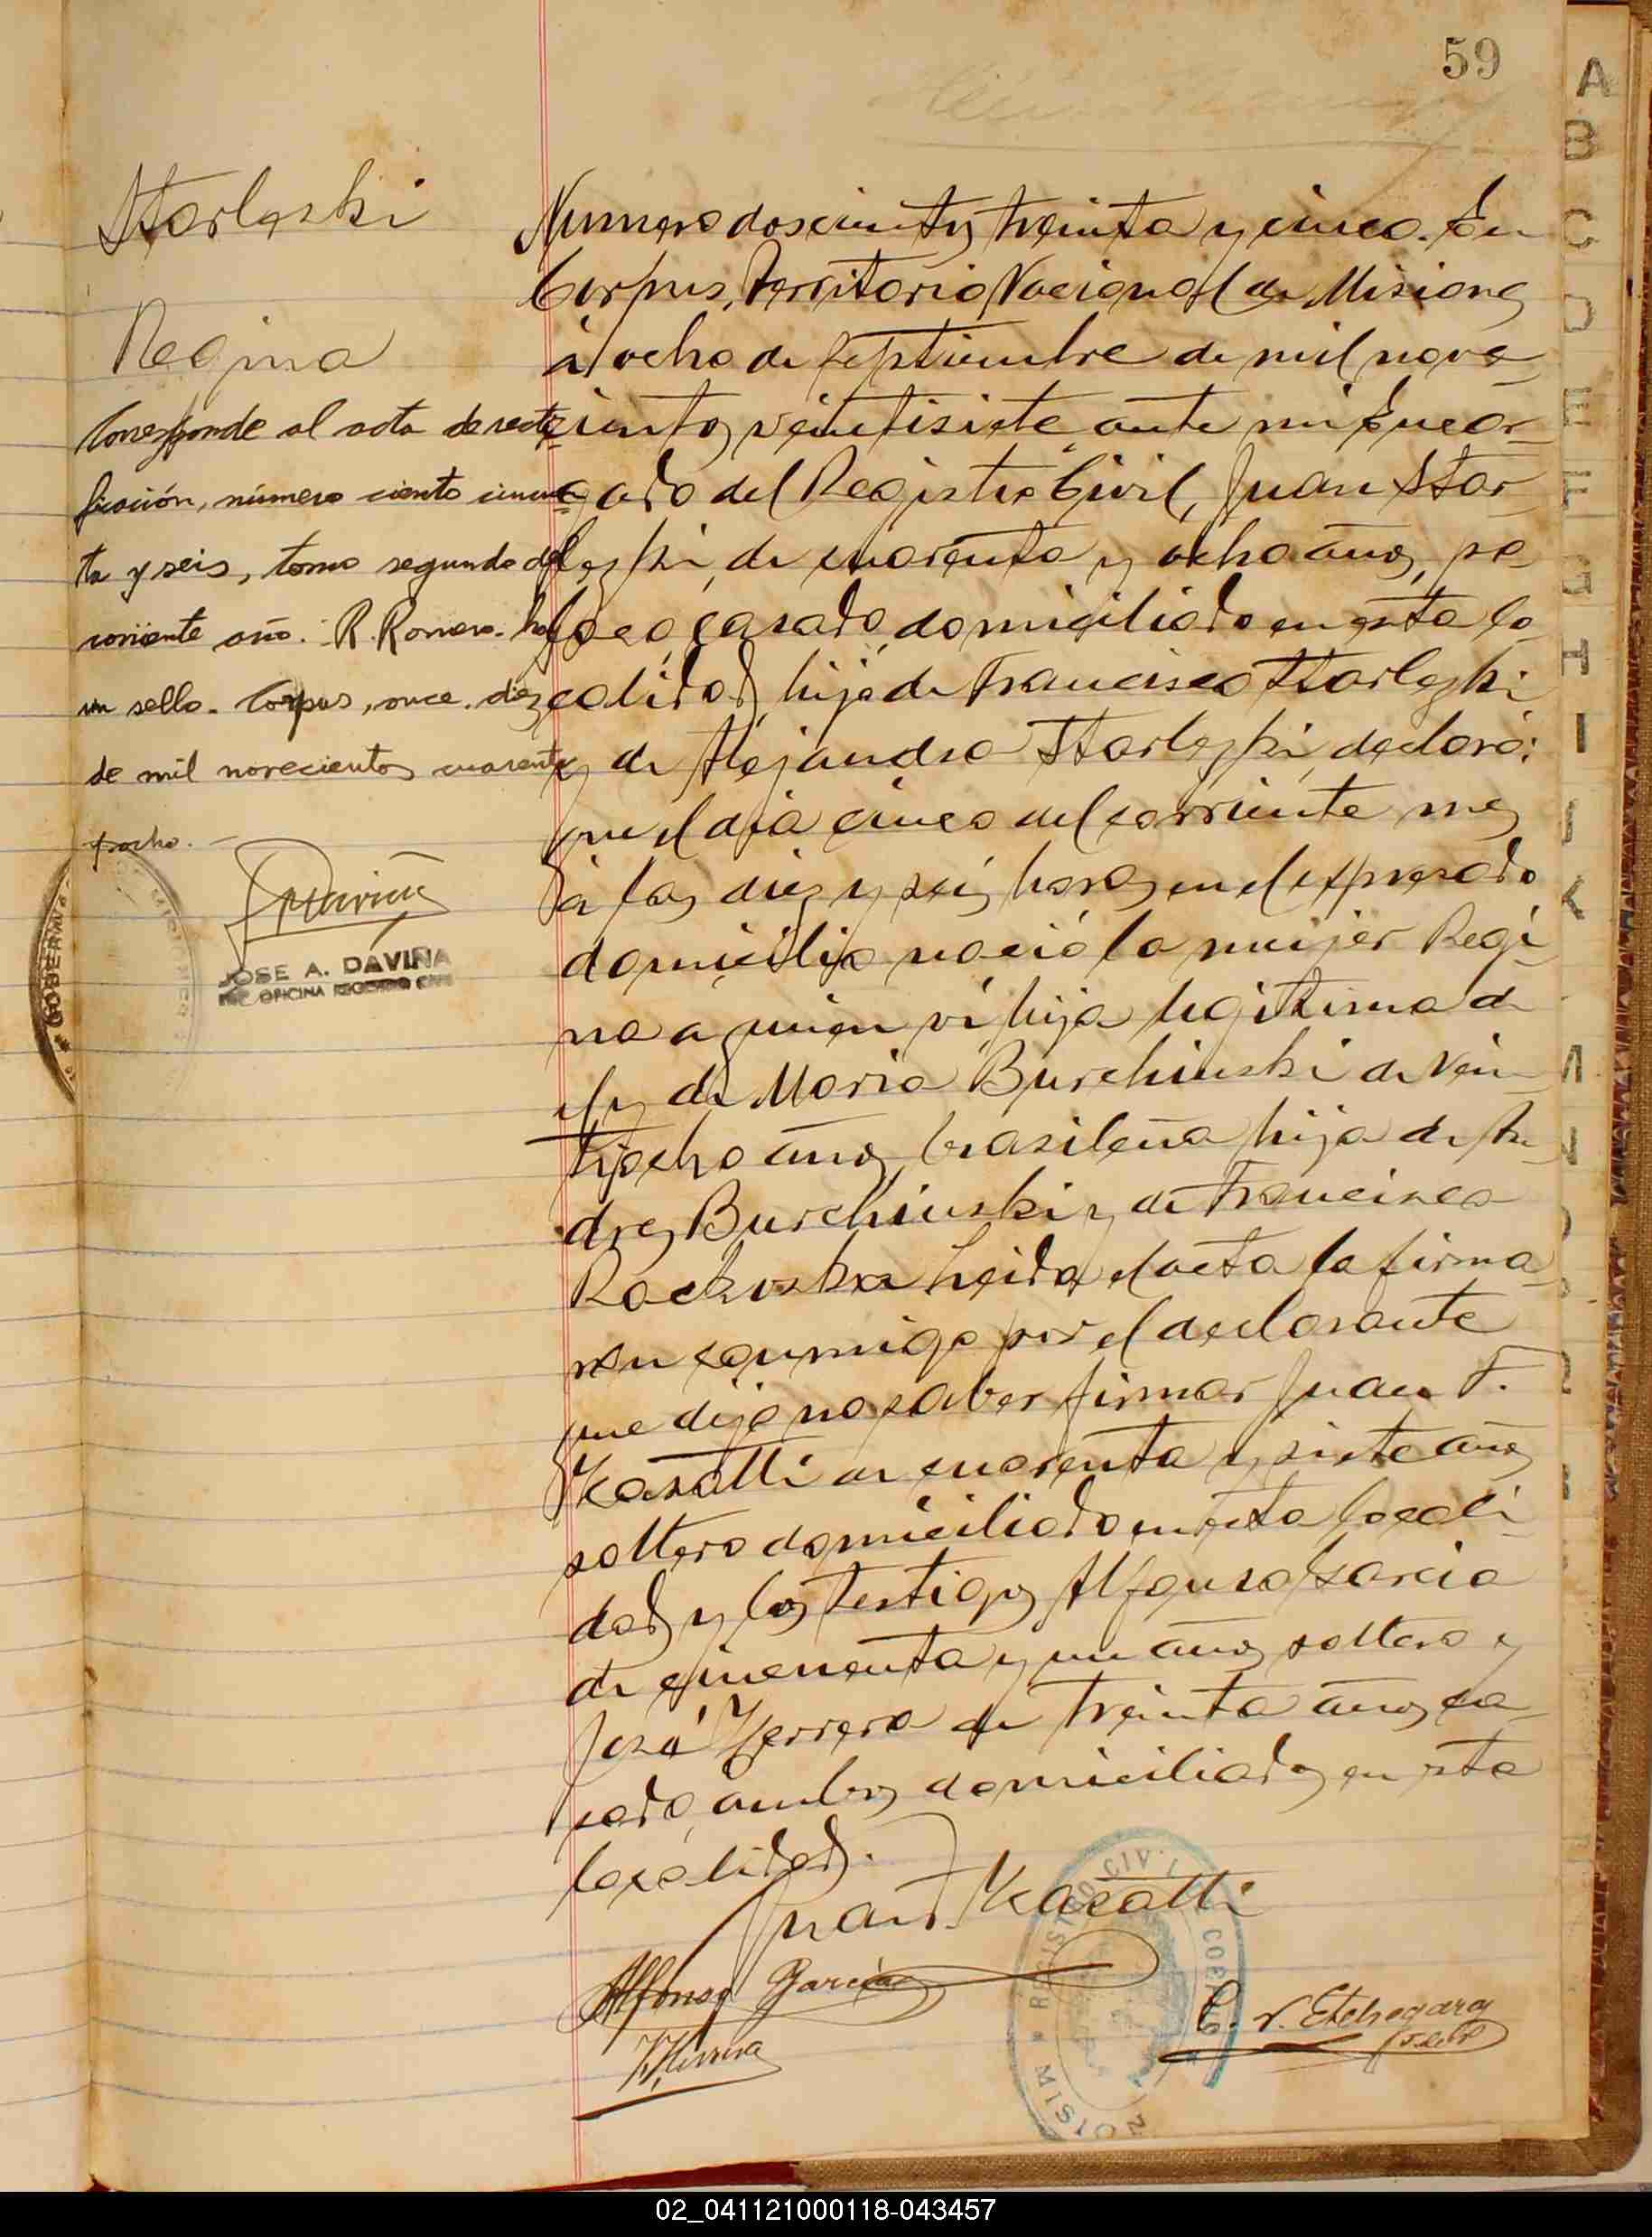 59
Starleski
Regina
Corresponde al acta de recti
ficación, número ciento cincuen
ta y seis, tomo segundo del
corriente año. R. Romero. hay
un sello. Corpus, once, diez
de mil novecientos cuarenta
y ocho.
JOSE A. DAVIÑA
ENC. OFICINA REGISTRO CIVIL
GOBERNA
Numero doscientos treinta y cinco. En
Corpus, Territorio Nacional de Misiones
a ocho de septiembre de mil nove
cientos veintisiete ante mi Encar
gado del Registro Civil, Juan Star
leski, de cuarenta y ocho años, po
laco, casado, domiciliado en esta lo
calidad, hijo de Francisco Starleski
y de Alejandra Starleski, declaró:
que el dia cinco del corriente mes
á las diez y seis horas en el expresado
domicilio nació la mujer Regi
na a quien vi hija legitima de
el y de Maria Burchinski de vein
tiocho años, brasileña hija de An
dres Burchinski y de Francisca
Leida el acta la firma
ron conmigo por el declarante
que dijo no saber firmar Juan F.
Kasatti de cuarenta y siete años
soltero domiciliado en esta locali
dad y los testigos Alfonso Garcia
de cincuenta y un años soltero y
José Herrera de treinta años ca
sado, ambos domiciliados en esta
localidad.
Juan F. Kasatti
Alfonso Garcia
J. Herrera
C. V. Etchegaray
REGISTRO CIVIL
MISIONES
A
B
C
D
E
F
G
H
I
J
K
M
N
02_041121000118-043457